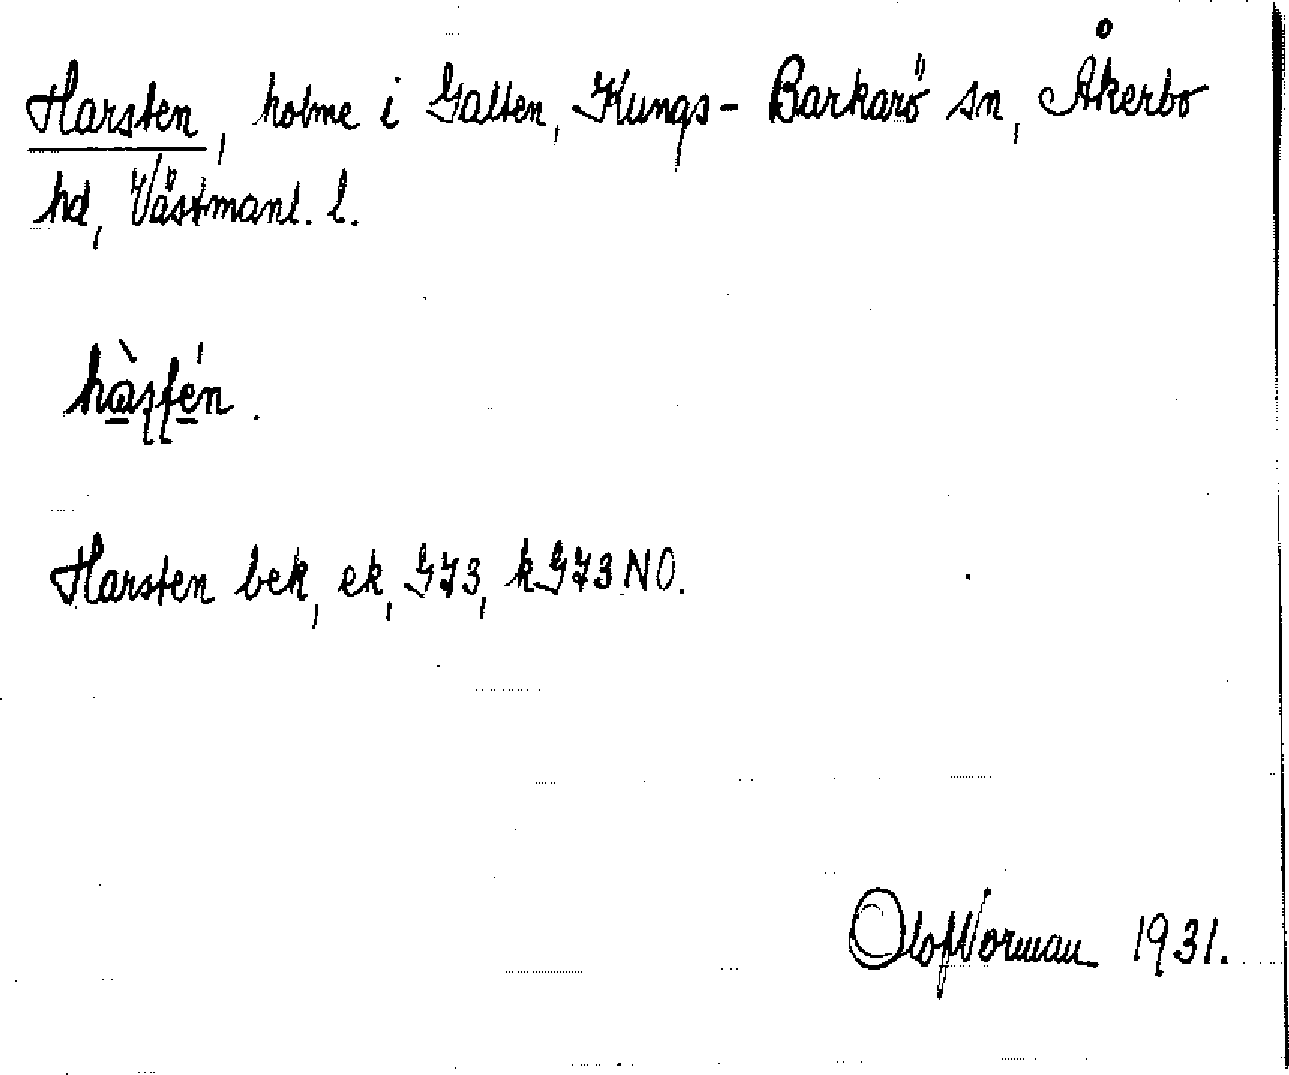 Harsten, holme i Galten, Kungs-Barkarö sn, Åkerbo
hd, Västmanl. l.
Harsten bek, ek, G73, kG73NO.
Olof Norman 1931.